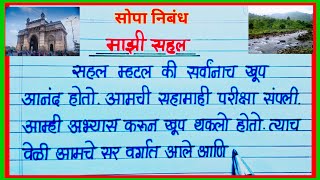 सोपा निबंध
माझी सहल
सहल म्हटल की सर्वानाच खूप
आनंद होतो. आमची सहामाही परीक्षा संपली.
आम्ही अभ्यास करून खूप थकलो होतो. त्याच
वेळी आमचे सर वर्गात आले आणि